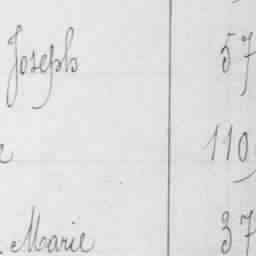 Joseph 57
110
Marie 37